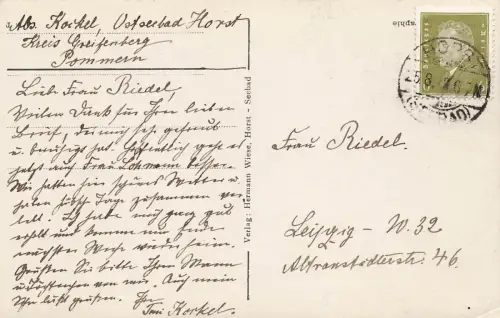 Abs. Korkel, Ostseebad Horst
Kreis Greifenberg
Pommern
Liebe Frau Riedel,
Vielen Dank für Ihren lieben
Brief, der mich sehr gefreut
u. beruhigt hat. Hoffentlich geht es
jetzt auch Frau Lohmann besser.
Wir hatten hier schönes Wetter u.
haben hübsch Tage zusammen ver
lebt. Ich habe mich ganz gut
erholt und komme nun Ende
nächster Woche wieder heim.
Grüßen Sie bitte Ihren Mann
u. von mir. Auch mein
läßt grüßen. Ihre
Korkel.
Verlag: Hermann Wiese, Horst - Seebad
HORST
5.8.
(SEEBAD)
Frau Riedel.
Leipzig - W. 32
Altranstädterstr. 46.